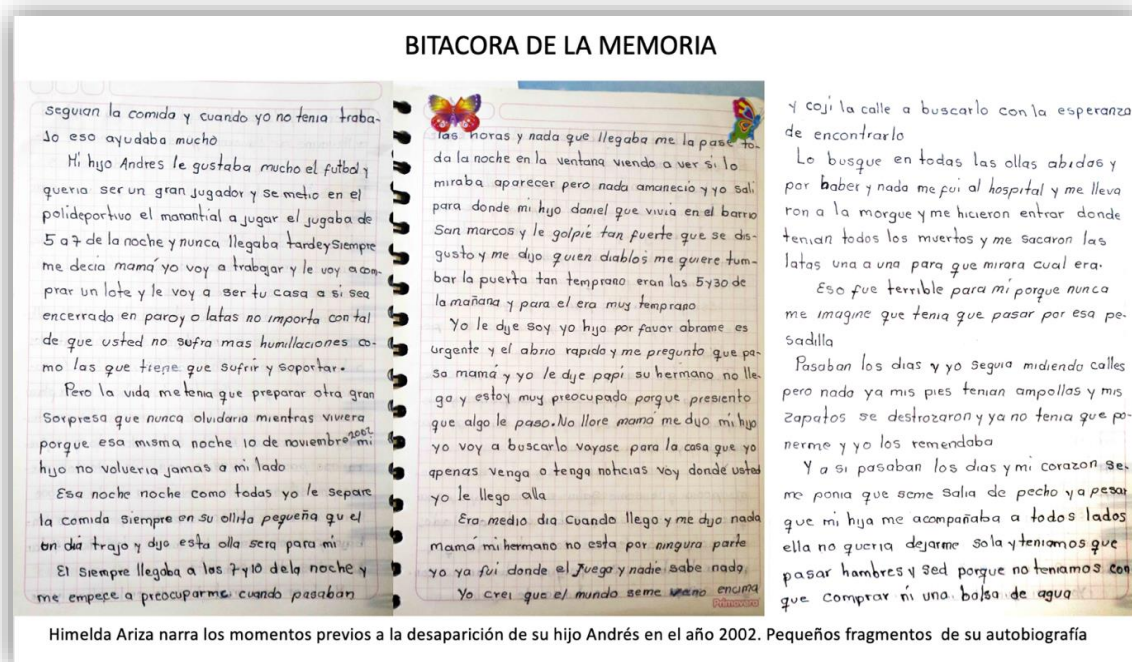 BITACORA DE LA MEMORIA
seguian la comida y cuando yo no tenia traba-
Jo eso ayudaba mucho
Mi hijo Andres le gustaba mucho el futbol y
queria ser un gran jugador y se metio en el
polideportivo el manantial a jugar el jugaba de
5 a 7 de la noche y nunca llegaba tarde y siempre
me decia mamá yo voy a trabajar y le voy a com-
prar un lote y le voy a ser tu casa a si sea
encerrado en paroy o latas no importa con tal
de que usted no sufra mas humillaciones co-
mo las que tiene que sufrir y soportar.
Pero la vida me tenia que preparar otra gran
Sorpresa que nunca olvidaria mientras viviera
porque esa misma noche 10 de noviembre 2002 mi
hijo no volveria jamas a mi lado
Esa noche noche como todas yo le separe
la comida siempre en su ollita pequeña qu el
un dia trajo y dijo esta olla sera para mi
El siempre llegaba a las 7 y 10 de la noche y
me empece a preocuparme cuando pasaban
las horas y nada que llegaba me la pase to-
da la noche en la ventana viendo a ver si lo
miraba aparecer pero nada amanecio y yo sali
para donde mi hijo daniel que vivia en el barrio
San marcos y le golpie tan fuerte que se dis-
gusto y me dijo quien diablos me quiere tum-
bar la puerta tan temprano eran las 5 y 30 de
la mañana y para el era muy temprano
Yo le dije soy yo hijo por favor abrame es
urgente y el abrio rapido y me pregunto que pa-
sa mamá y yo le dije papi su hermano no lle-
go y estoy muy preocupada porque presiento
que algo le paso. No llore mamá me dijo mi hijo
yo voy a buscarlo vayase para la casa que yo
apenas venga o tenga noticias voy donde usted
yo le llego alla
Era medio dia cuando llego y me dijo nada
mamá mi hermano no esta por ningura parte
yo ya fui donde el Juega y nadie sabe nada.
Yo crei que el mundo seme encima
Primavera
y coji la calle a buscarlo con la esperanza
de encontrarlo
Lo busque en todas las ollas abidas y
por haber y nada me fui al hospital y me lleva
ron a la morgue y me hicieron entrar donde
tenian todos los muertos y me sacaron las
latas una a una para que mirara cual era.
Eso fue terrible para mi porque nunca
me imagine que tenia que pasar por esa pe-
sadilla
Pasaban los dias y yo seguia midiendo calles
pero nada ya mis pies tenian ampollas y mis
zapatos se destrozaron y ya no tenia que po-
nerme y yo los remendaba
Y a si pasaban los dias y mi corazon se.
me ponia que seme salia de pecho y a pesar
que mi hija me acompañaba a todos lados
ella no queria dejarme sola y teniamos que
pasar hambres y sed porque no teniamos con
que comprar ni una bolsa de agua
Himelda Ariza narra los momentos previos a la desaparición de su hijo Andrés en el año 2002. Pequeños fragmentos de su autobiografía